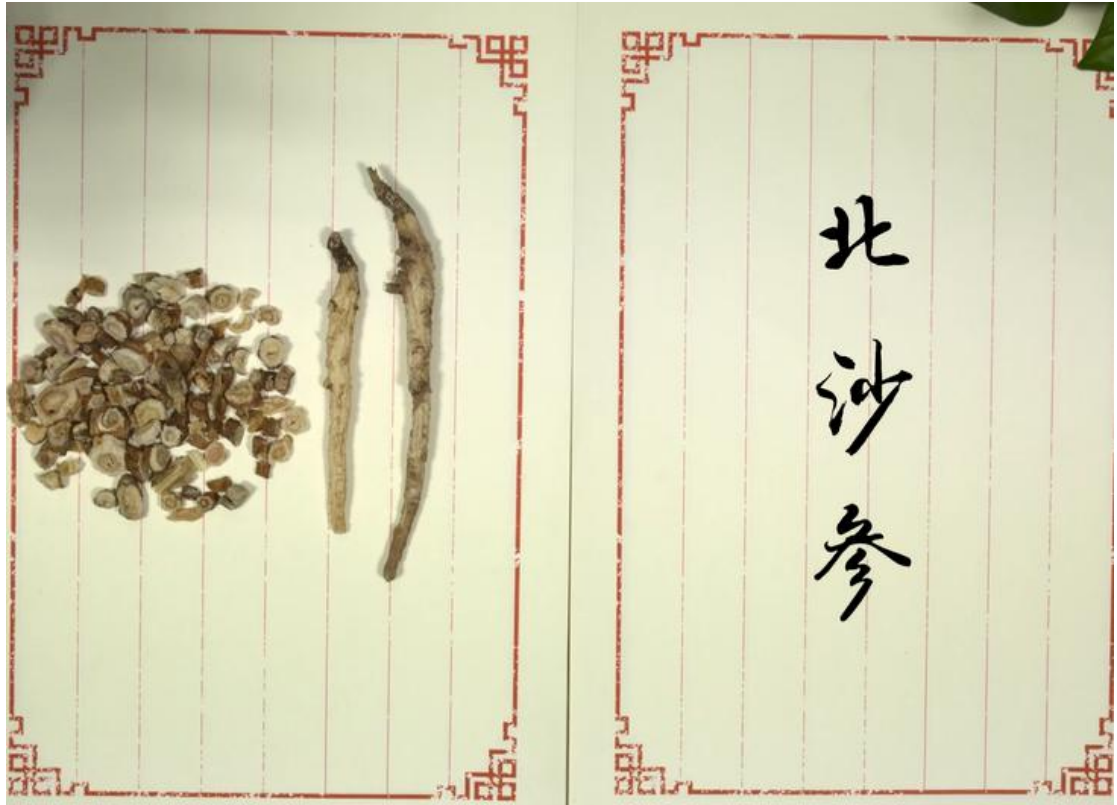 北沙参